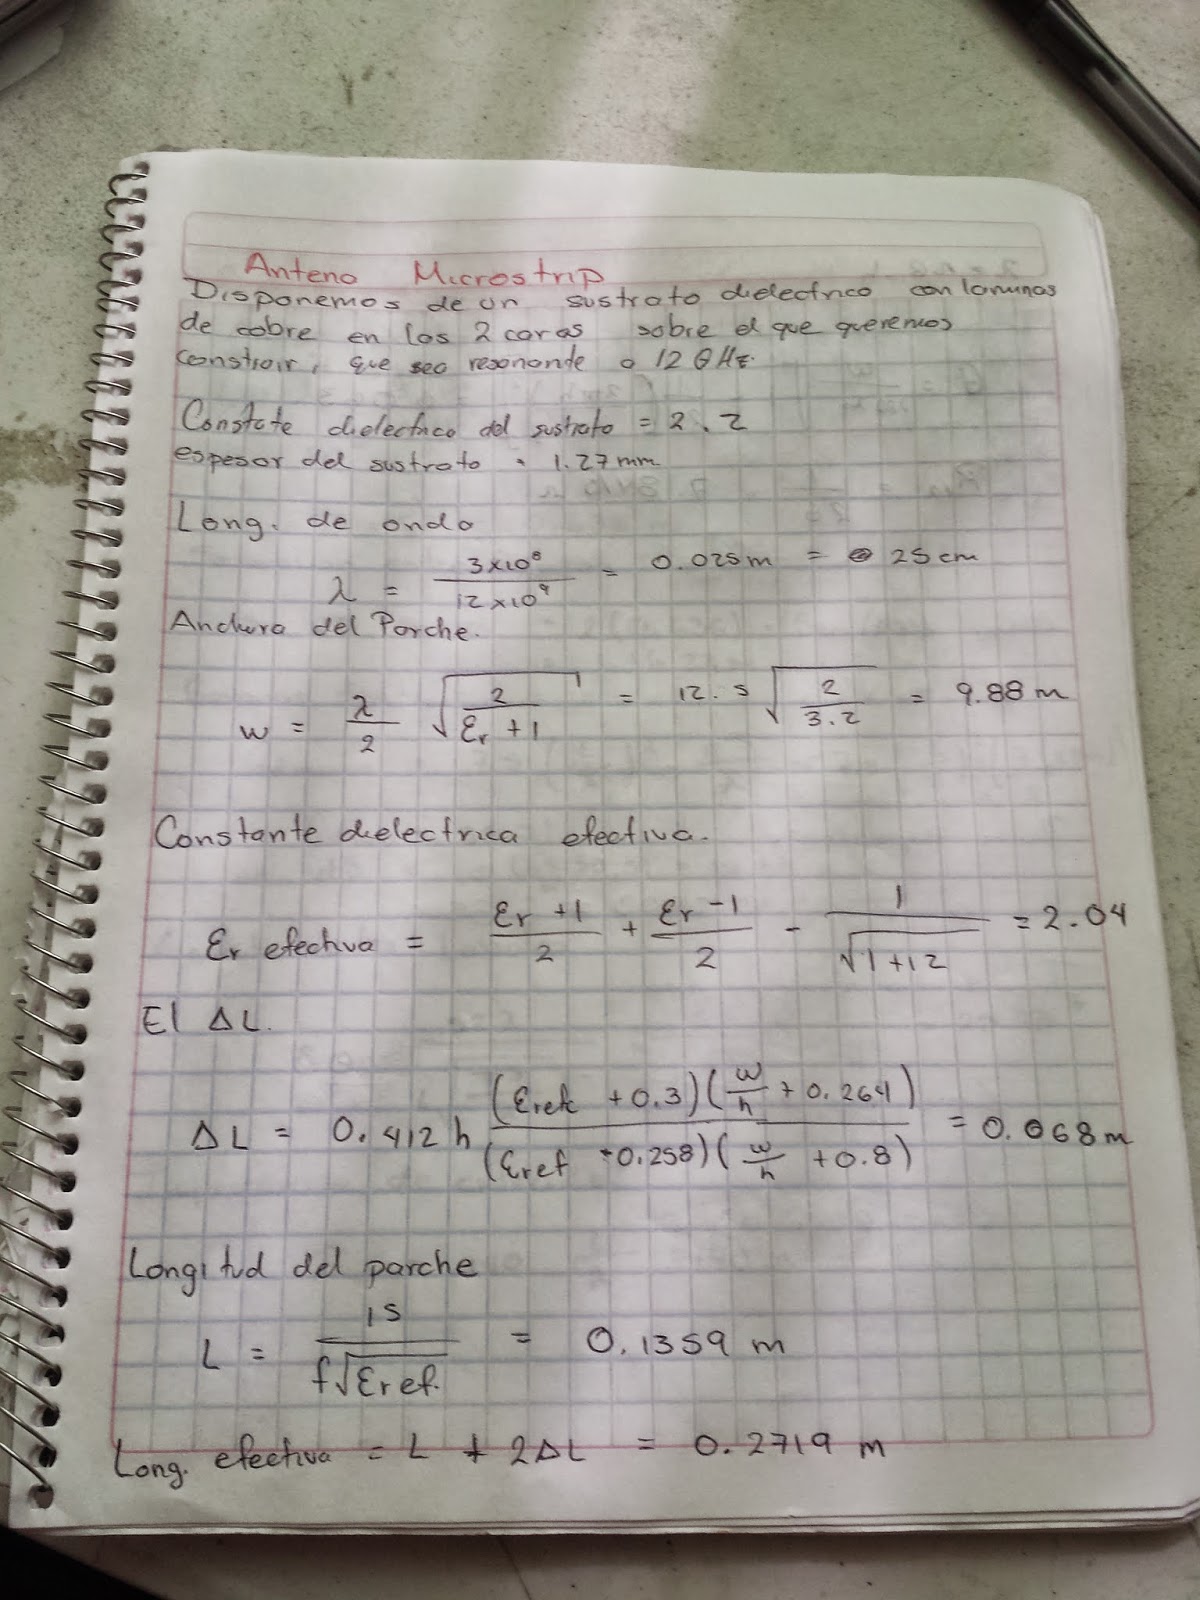 Antena Microstrip
Disponemos de un sustrato dielectrico con laminas
de cobre en las 2 caras sobre el que queremos
construir, que sea resonante a 12 GHz.
Constate dielectrica del sustrato = 2.2
espesor del sustrato = 1.27 mm
Long. de onda
λ = 3x10⁸ / 12x10⁹ = 0.025 m = 25 cm
Anchura del Parche.
w = λ/2 √(2/(Er + 1)) = 12.5 √(2/3.2) = 9.88 m
Constante dielectrica efectiva.
Er efectiva = (Er +1)/2 + (Er -1)/2 - 1/√(1+12) = 2.04
El ΔL.
ΔL = 0.412 h (Erefc + 0.3)(w/h + 0.264) / (Eref -0.258)(w/h + 0.8) = 0.068 m
Longitud del parche
L = 15 / f√Eref. = 0.1359 m
Long. efectiva = L + 2ΔL = 0.2719 m